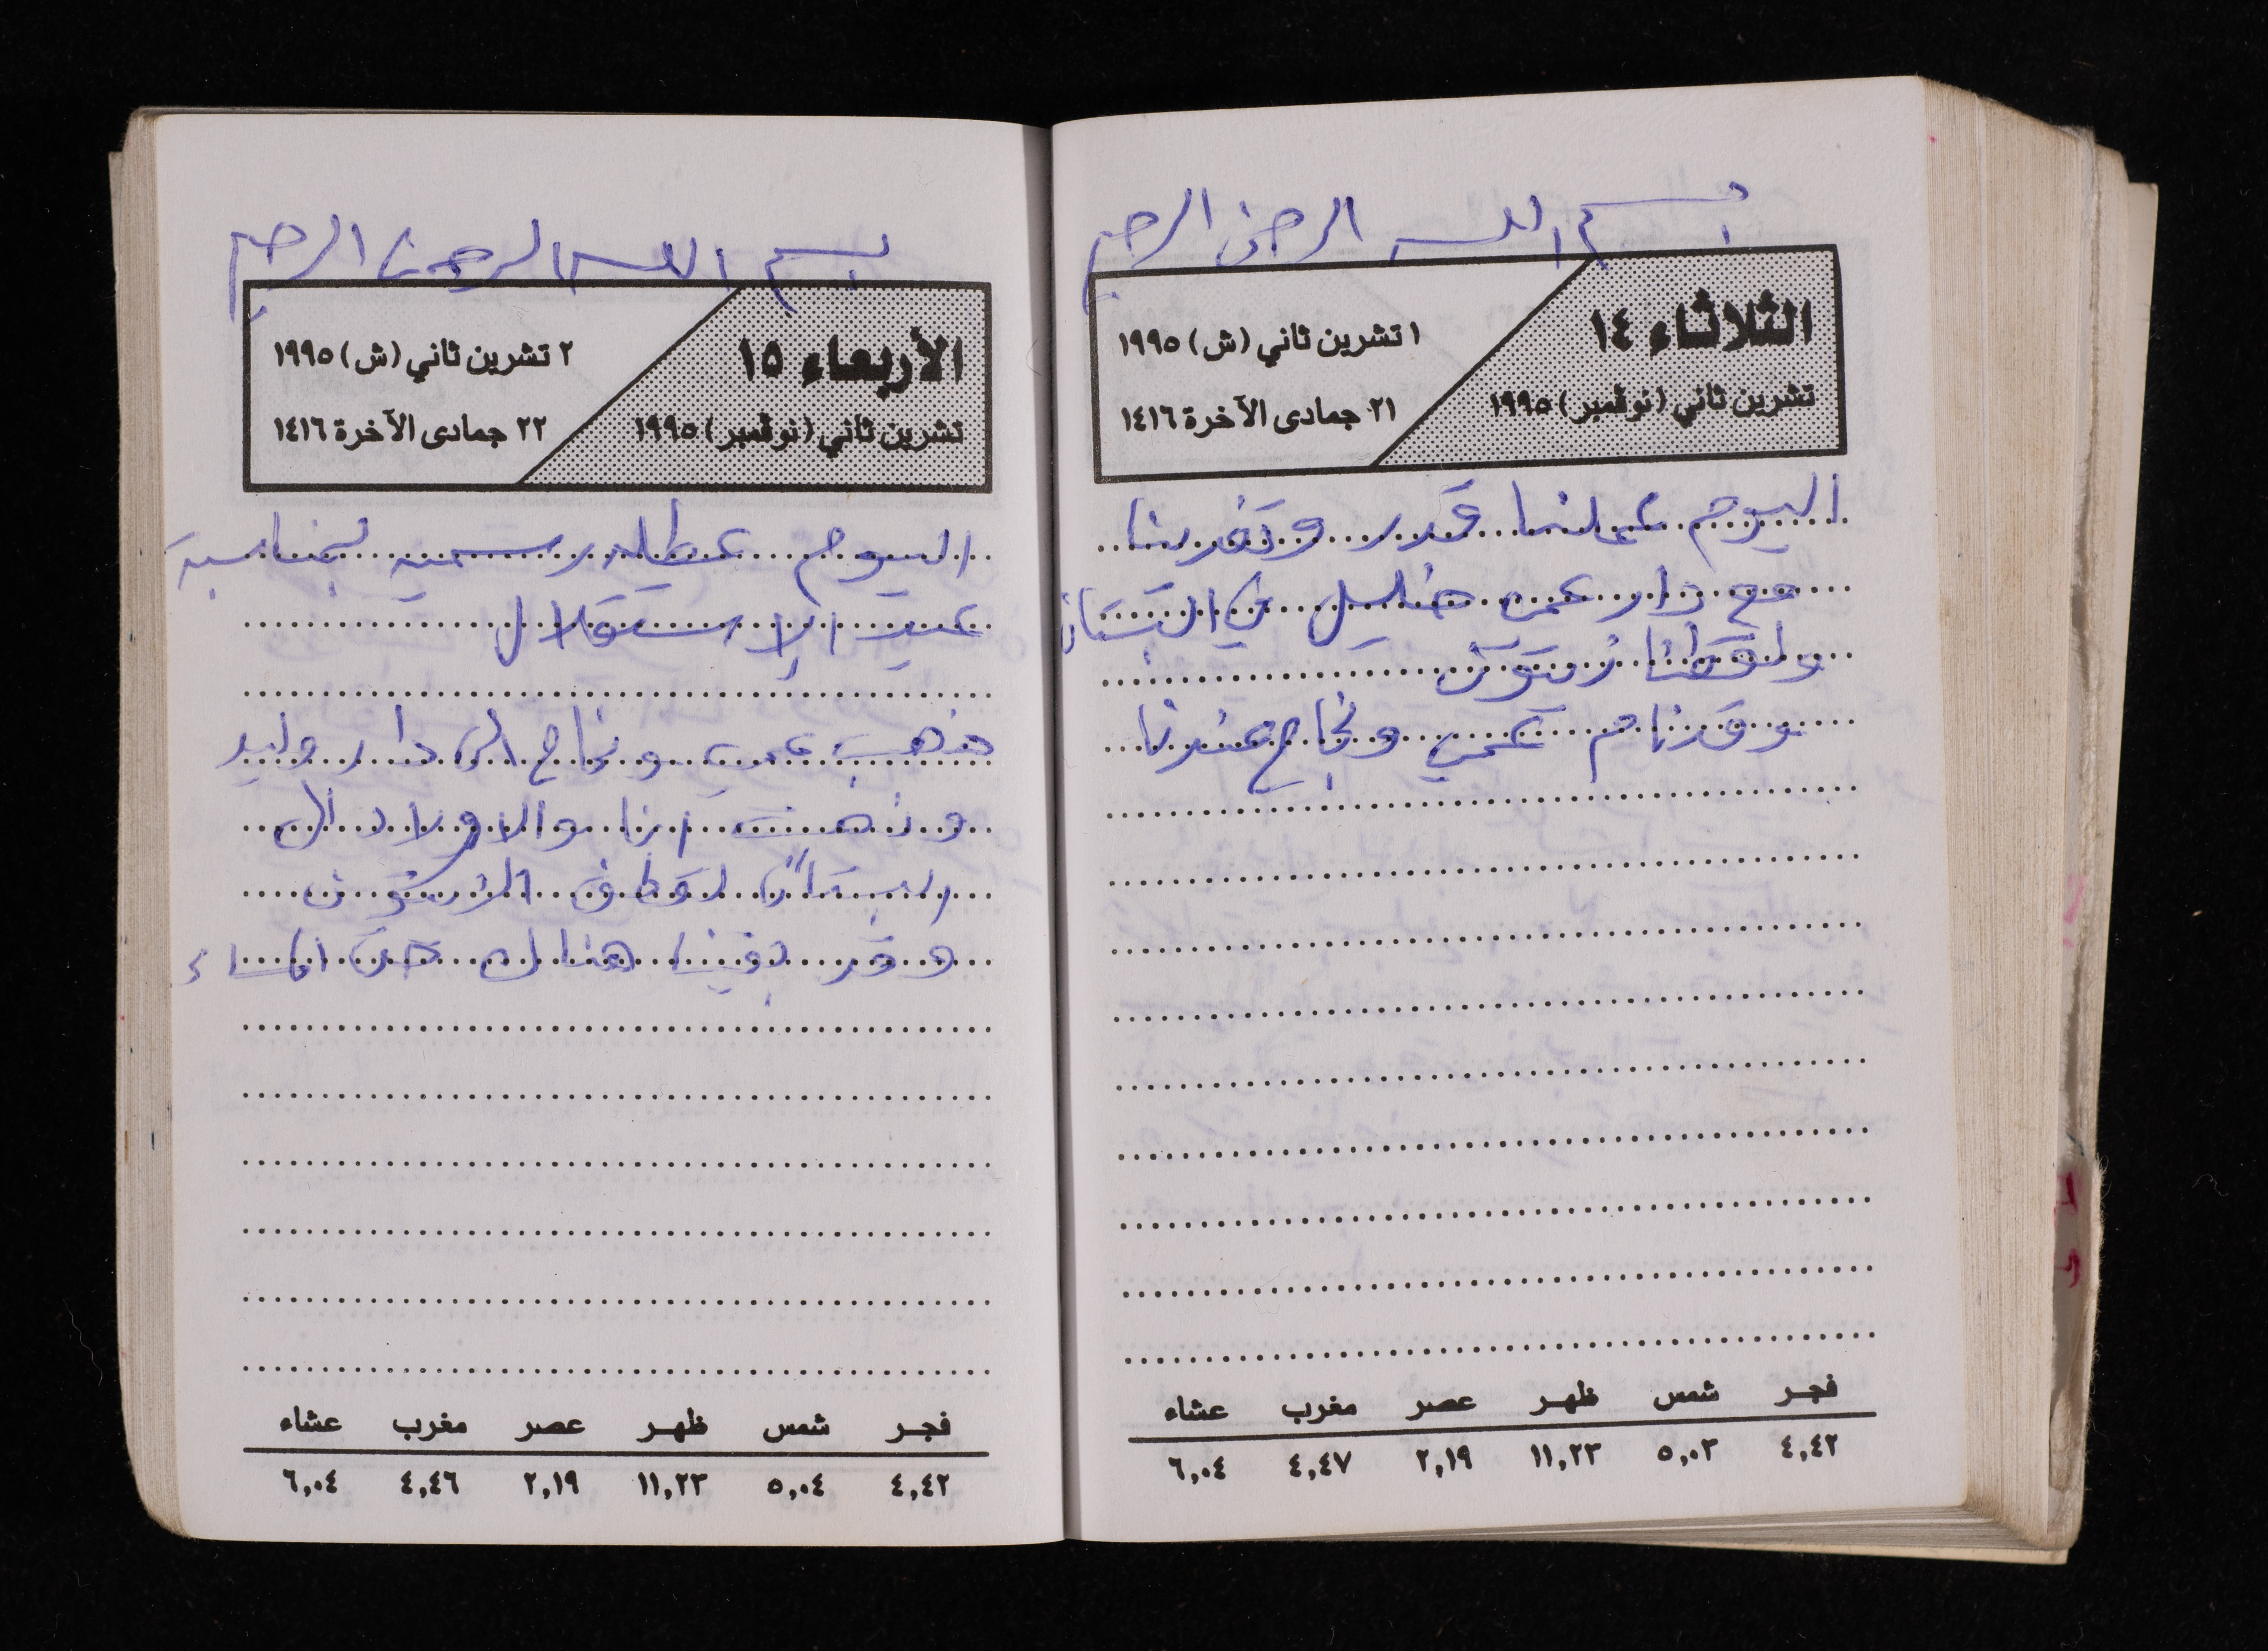 بسم الله الرحمن الرحيم
الثلاثاء ١٤
تشرين ثاني (نوڤمبر) ١٩٩٥
١ تشرين ثاني (ش) ١٩٩٥
٢١ جمادى الآخرة ١٤١٦
اليوم عملنا قدر وتغدينا
مع دار عمي خليل في البستان
ولقطنا زيتون
وقد نام عمي ونجاح عندنا
فجر شمس ظهر عصر مغرب عشاء
٤,٤٢ ٥,٠٣ ١١,٢٣ ٢,١٩ ٤,٤٧ ٦,٠٤
بسم الله الرحمن الرحيم
الأربعاء ١٥
تشرين ثاني (نوڤمبر) ١٩٩٥
٢ تشرين ثاني (ش) ١٩٩٥
٢٢ جمادى الآخرة ١٤١٦
اليوم عطله رسميه بمناسبة
عيد الاستقلال
ذهب عمي ونجاح الى دار وليد
وذهبت انا والاولاد الى
البستان لقطف الزيتون
وقد بقينا هناك حتى المساء
فجر شمس ظهر عصر مغرب عشاء
٤,٤٢ ٥,٠٤ ١١,٢٣ ٢,١٩ ٤,٤٦ ٦,٠٤